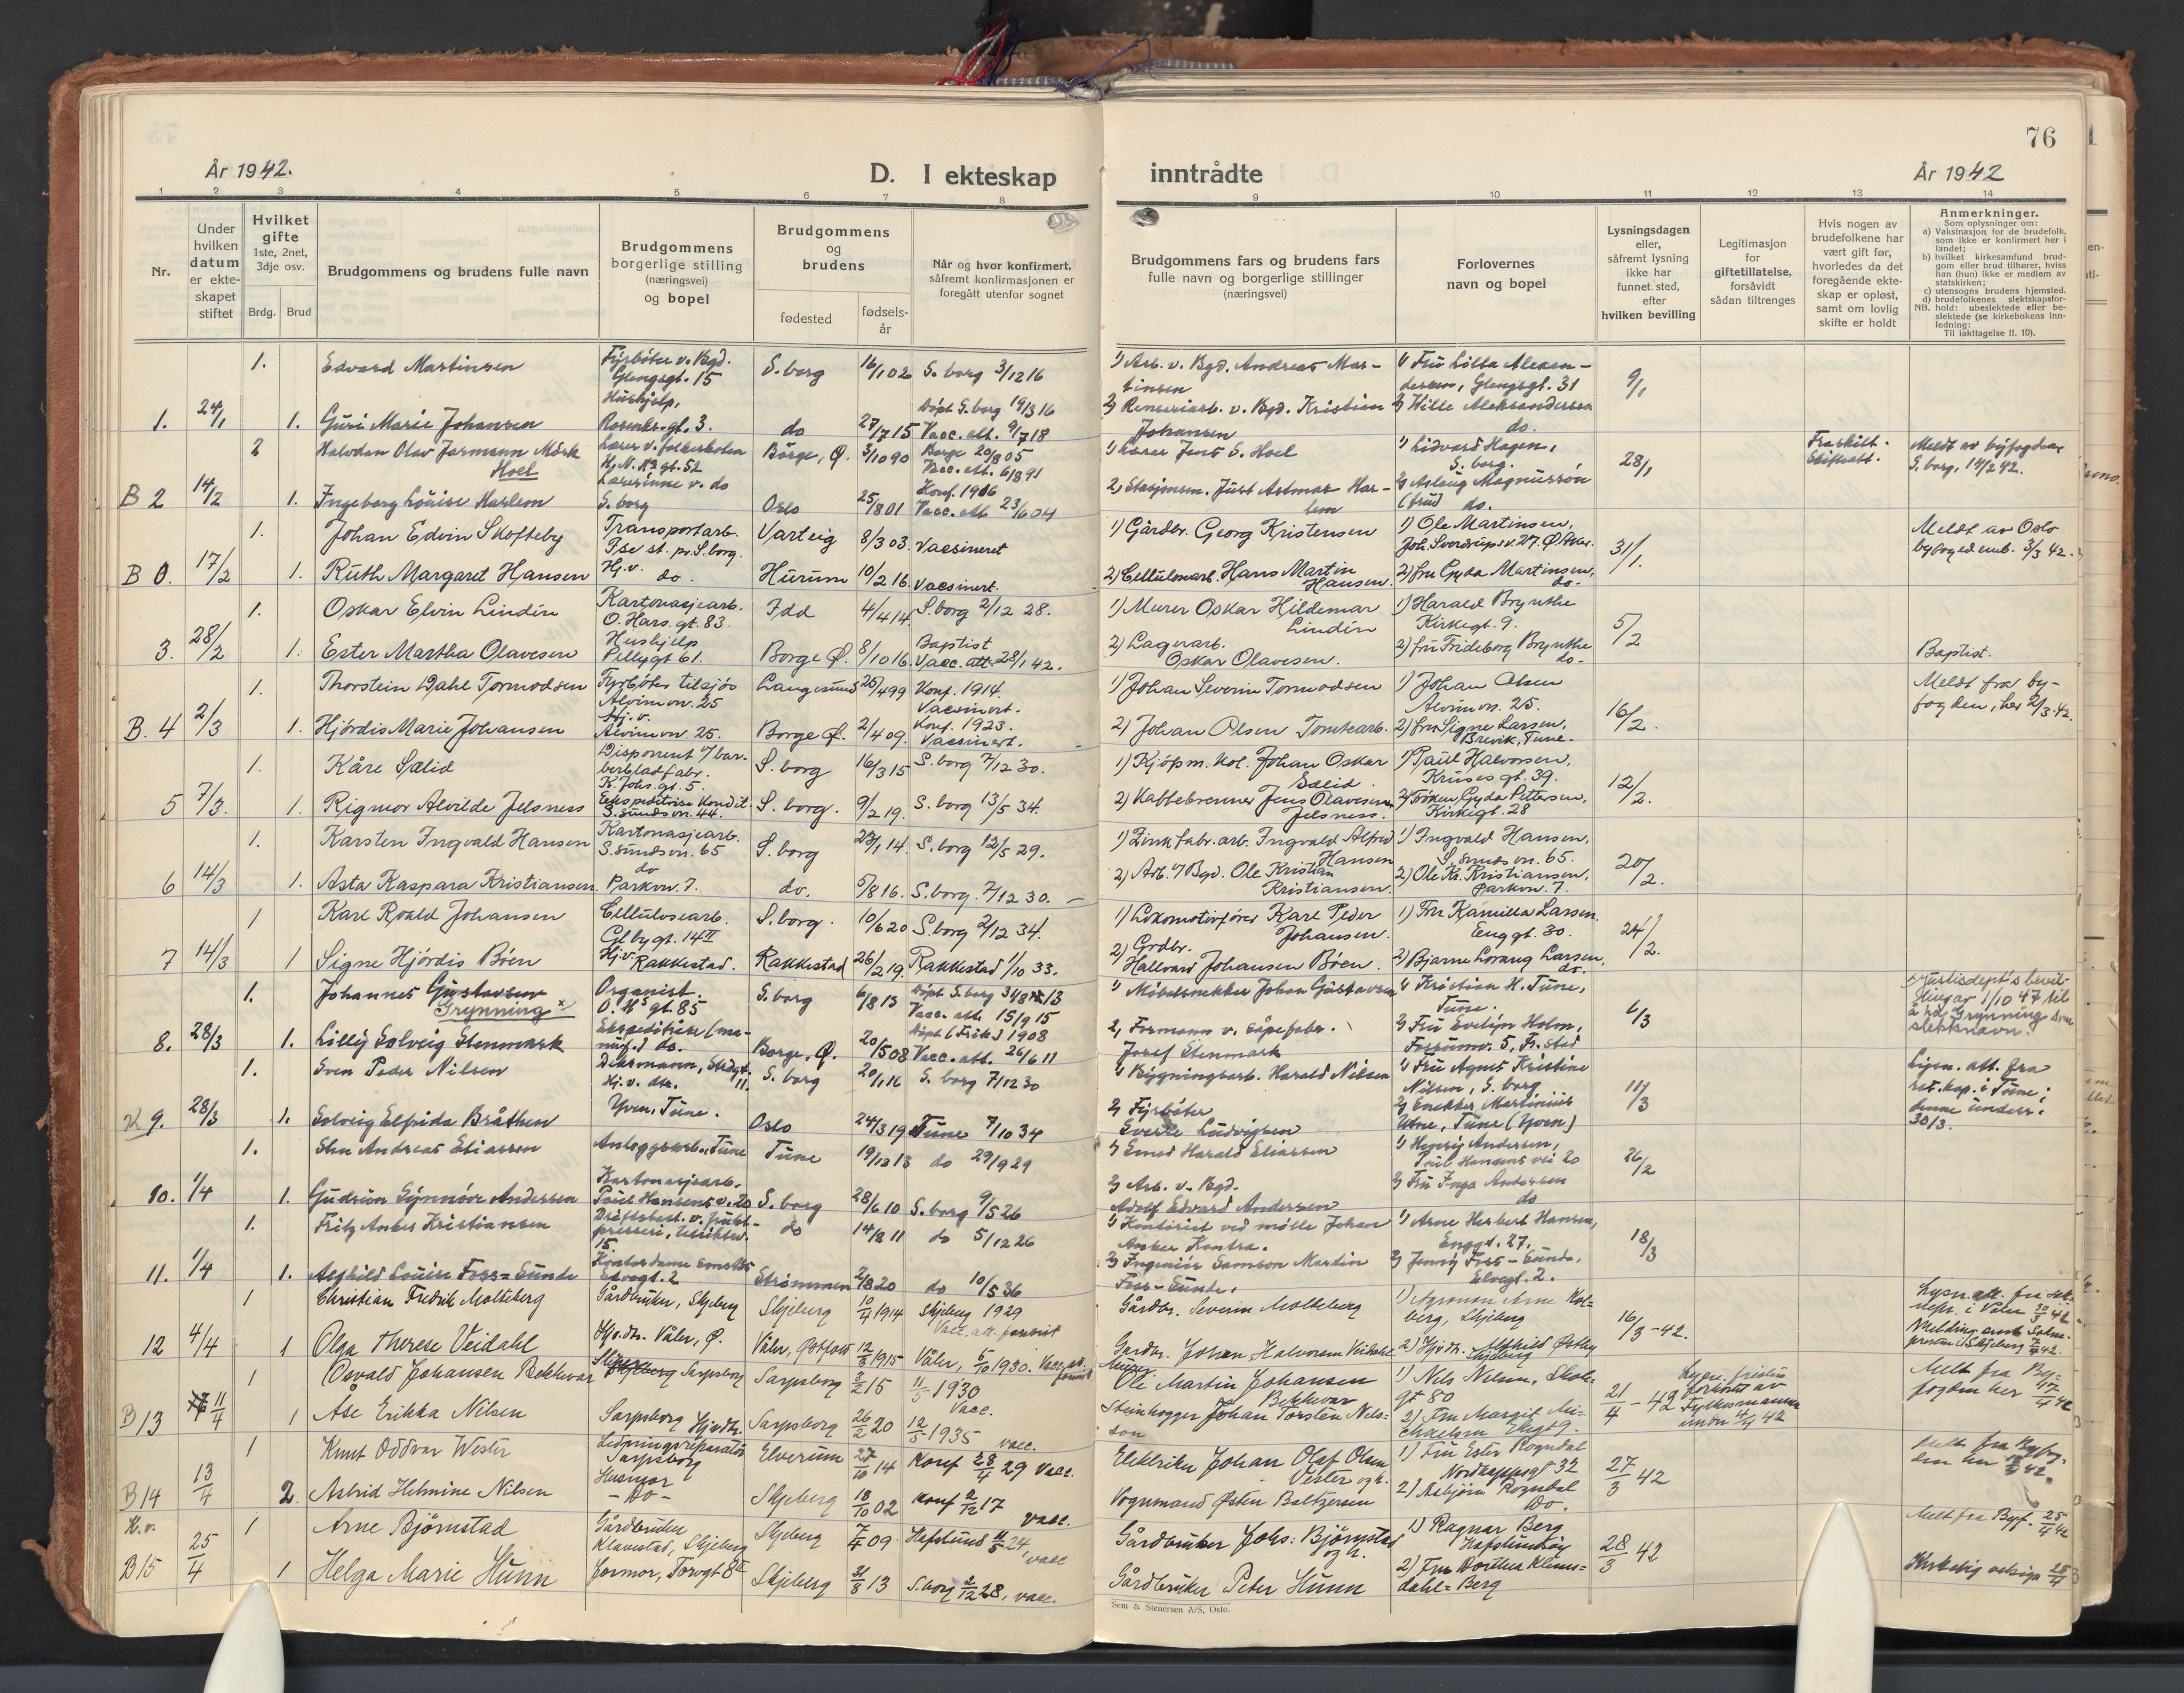 76
År 1942.
D. I ekteskap inntrådte
År 1942
1 2 3 4 5 6 7 8 9 10 11 12 13 14
Nr.
Under hvilken datum er ekte-skapet stiftet
Hvilket gifte
1ste, 2net, 3dje osv.
Brdg. Brud
Brudgommens og brudens fulle navn
Brudgommens borgerlige stilling (næringsvei) og bopel
Brudgommens og brudens
fødested
fødsels-år
Når og hvor konfirmert, såfremt konfirmasjonen er foregått utenfor sognet
Brudgommens fars og brudens fars fulle navn og borgerlige stillinger (næringsvei)
Forlovernes navn og bopel
Lysningsdagen eller, såfremt lysning ikke har funnet sted, efter hvilken bevilling
Legitimasjon for giftetillatelse, forsåvidt sådan tiltrenges
Hvis nogen av brudefolkene har vært gift før, hvorledes da det foregående ekte-skap er opløst, samt om lovlig skifte er holdt
Anmerkninger.
Som oplysninger om:
a) Vaksinasjon for de brudefolk, som ikke er konfirmert her i landet;
b) hvilket kirkesamfund brud-gom eller brud tilhører, hviss han (hun) ikke er medlem av statskirken;
c) utensogns brudens hjemsted.
d) brudefolkenes slektskapsfor-hold: ubeslektede eller be-slektede (se kirkebokens inn-ledning:
NB.
Til iakttagelse II. 10).
1. Edvard Martinsen Fyrbøter v. Bgd. Glengsgt. 15 S. borg 16/1 02 S. borg 3/12 16
1) Arb. v. Bgd. Andreas Martinsen 1) Fru Lilla Aleksandersen, Glengsgt. 31 9/1
1. 24/1 1. Guri Marie Johansen Hushjelp, Rosenkr.gt. 3. do 27/7 15 Døpt S. borg 19/3 16 Vacc. att. 9/7 18
2) Renseriarb. v. Bgd. Kristian Johansen 2) Wille Aleksandersen do.
2 Halvdan Olav Jarmann Mørk Hoel Lærer v. folkeskolen Borge, Ø. 3/10 90 Borge 20/8 05 Vacc. att. 6/8 91
1) Lærer Jens S. Hoel 1) Lidvard Hagen, S. borg. 28/1 Fraskilt. Skifteatt. Meldt av byfogden S. borg, 14/2 42.
B 2 14/2 1. Ingeborg Louise Harlem Lærerinne v. do S. borg Oslo 25/8 01 Konf. 1916 Vacc. att 23/6 04
2) Stasjonsm. Just Astmar Harlem 2) Aslaug Magnussøn (fru) do.
1. Johan Edvin Skofteby Transportarb. Ise st. pr. S. borg. Varteig 8/3 03. Vaccineret
1) Gårdbr. Georg Kristensen 1) Ole Martinsen, Joh. Sverdrups v. 27. Ø. Aker. 31/1. Meldt av Oslo byfogdemb. 3/3 42.
B 0. 17/2 1. Ruth Margaret Hansen Hj.v. do. Hurum 10/2 16. Vaccinert.
2) Cellulosearb. Hans Martin Hansen. 2) Fru Gyda Martinsen, do.
1. Oskar Elvin Lindin Kartonasjearb. O. Hars. gt. 83. Idd 4/4 14. S. borg 2/12 28.
1) Murer Oskar Hildemar Lindin 1) Harald Brynthe Kirkegt. 9. 5/2
3. 28/2 1. Ester Martha Olavesen Hushjelp Pellygt 61. Borge Ø. 8/10 16. Baptist Vacc. att. 28/1 42.
2) Lagerarb. Oskar Olavesen. 2) Fru Frideborg Brynthe do. Baptist.
1. Thorstein Dahl Tormodsen Fyrbøter tilsjøs Alvimvn. 25 Langesund 25/4 99 Konf. 1914. Vaccinert.
1) Johan Severin Tormodsen 1) Johan Olsen Alvimvn. 25. 16/2. Meldt fra byfogden, her 2/3.42.
B. 4 2/3 1. Hjørdis Marie Johansen Hj.v. Alvimvn. 25. Borge Ø. 2/4 09. Konf. 1923. Vaccinert.
2) Johan Olsen Tomtearb. 2) Fru Signe Larsen, Brevik, Tune.
1. Kåre Sælid Disponent v/ barberbladfabr. K. Johs. gt. 5. S. borg 16/3 15 S. borg 7/12 30.
1) Kjøpm. Kol. Johan Oskar Sælid. 1) Paul Halvorsen, Kruses gt. 39. 12/2.
5 7/3. 1. Rigmor Alvilde Jelsness Ekspeditrise Kondit. S. sundsvn. 44. S. borg. 9/2 19. S. borg 13/5 34.
2) Kaffebrenner Jens Olavesen Jelsness. 2) Frøken Gyda Pettersen, Kirkegt. 28
1. Karsten Ingvald Hansen Kartonasjearb. S. sundsvn. 65 S. borg 23/1 14. S. borg 12/5 29.
1) Zinkfabr. arb. Ingvald Alfred Hansen 1) Ingvald Hansen, S. sundsvn. 65. 20/2.
6 14/3 1. Asta Kaspara Kristiansen do Parkvn. 7. do. 5/8 16. S. borg. 7/12 30.
2) Arb. v/ Bgd. Ole Kristian Kristiansen. 2) Ole Kr. Kristiansen, Parkvn. 7.
1 Karl Roald Johansen Cellulosearb. Glbygt. 14 II S. borg. 10/6 20 S. borg 2/12 34.
1) Lokomotivfører Karl Peder Johansen. 1) Fru Kamilla Larsen. Enggt. 30. 24/2.
7 14/3 1 Signe Hjørdis Bøen Hj.v. Rakkestad. Rakkestad 26/2 19. Rakkestad 1/10 33.
2) Grdbr. Hallvard Johansen Bøen. 2) Bjarne Lorang Larsen, do.
1. Johannes Gustavsen Grynning x Organist. O. H's gt. 85 S. borg 6/8 13 Døpt S. borg 31/8 13 Vacc. att. 15/9 15
1) Møbelsnekker Johan Gustavsen 1) Kristian H. Tune, Tune. 6/3 x) Justisdept's bevilling av 1/10 47 til å ha Grynning som slektsnavn.
8. 28/3 1. Lilly Solveig Stenmark do. Borge, Ø. 20/5 08 Døpt (Frik.) 1908 Vacc. att. 26/6 11
2) Formann v. såpefabr. Josef Stenmark 2) Fru Evelyn Holm, Fossumv. 5, Fr. stad
1. Sven Peder Nilsen S. borg 20/1 16 S. borg 7/12 30
1) Bygningsarb. Harald Nilsen 1) Fru Agnes Kristine Nilsen, S. borg 11/3 Lysn. att. fra res. kap. i Tune; denne underr. 30/3.
K 9. 28/3 1. Solveig Elfrida Bråthen Yven, Tune. Oslo 24/3 19 Tune 7/10 34
2) Fyrbøter Sverre Ludvigsen 2) Snekker Martinius Utne, Tune (Yven)
1. Sten Andreas Eliassen Anleggsarb., Tune Tune 19/12 13 do 29/9 29
1) Ernst Harald Eliassen 1) Henry Andersen, Poul Hansens vei 20 26/2
10. 1/4 1. Gudrun Synnøve Andersen Kartonasjearb. Poul Hansens v. 20 S. borg 28/6 10 S. borg 9/5 26
2) Arb. v. Bgd. Adolf Edvard Andersen 2) Fru Inga Andersen do
1. Fritz Anker Kristiansen do 14/8 11 do 5/12 26
1) Kontorist ved mølle Johan Anker Kontra. 1) Arne Herbert Hansen, Enggt. 27. 18/3
11. 1/4 1. Aghild Louise Foss-Sunde Elvegt. 2 Strømmen 2/8 20 do 10/5 36
2) Ingeniør Samson Martin Foss-Sunde. 2) Jenny Foss-Sunde, Elvegt. 2.
1 Christian Fredrik Molteberg Gårdbruker, Skjeberg Skjeberg 10/4 1914 Skjeberg 1929 Vacc. att. forevist
Gårdbr. Severin Molteberg 1) Agronom Arne Molberg, Skjeberg 16/3-42. Lysn. att. fra sokneprest i Våler 30/3 42
12 4/4 1 Olga Therese Veidahl Hj.v.dtr. Våler, Ø. Våler, Østfold 12/8 1915 Våler, 5/10 1930. Vacc. att. forevist
Gardbr. Johan Halvorsen Veidahl 2) Hjv.dtr. Østby Skjeberg Melding sendt Soknepresten i Skjeberg 7/4 42.
1 Osvald Johansen Bekkevar Sarpsborg Sarpsborg 3/2 15 11/5 1930 Vacc.
Murer Ole Martin Johansen Bekkevar 1) Nils Nilsen, Skolegt 80 21/4-42 Melt fra Byfogden her 17/4 42
B 13 11/4 1 Åse Erikka Nilsen Sarpsborg Hjv.dtr. Sarpsborg 26/2 20 12/5 1935 vacc.
Steinhogger Johan Torsten Nilsson 2) Fru Margit Michaelsen
1 Knut Oddvar Wester Ledningsreparatør Sarpsborg Elverum 27/10 14 Konf 28/4 29 Vacc.
Elektriker Johan Olaf Olsen Vester og h. 1) Fru Ester Rogndal Nordkappsgt 32 27/3 42
B 14 13/4 2. Astrid Helmine Nilsen Husmor - Do - Skjeberg 18/10 02 Konf 2/12 17 vacc.
Vognmand Østen Baltzersen 2) Asbjørn Rogndal Do.
K.v. 1 Arne Bjørnstad Gårdbruker Klavestad, Skjeberg Skjeberg 7/4 09 Hafslund 11/5 24, vacc
Gårdbruker Johs: Bjørnstad og h. 1) Ragnar Berg Hafslundsøy 28/3 42 Melt fra Byf. 25/4 42
B 15 25/4 1 Helga Marie Hunn Jormor, Torvgt 8 Skjeberg 31/8 13 S. borg 2/12 28, vacc.
Gårdbruker Peter Hunn 2) Fru Dorthea Klemsdahl-Berg Kirkelig vielse 25/4
Sem & Stenersen A/S, Oslo.